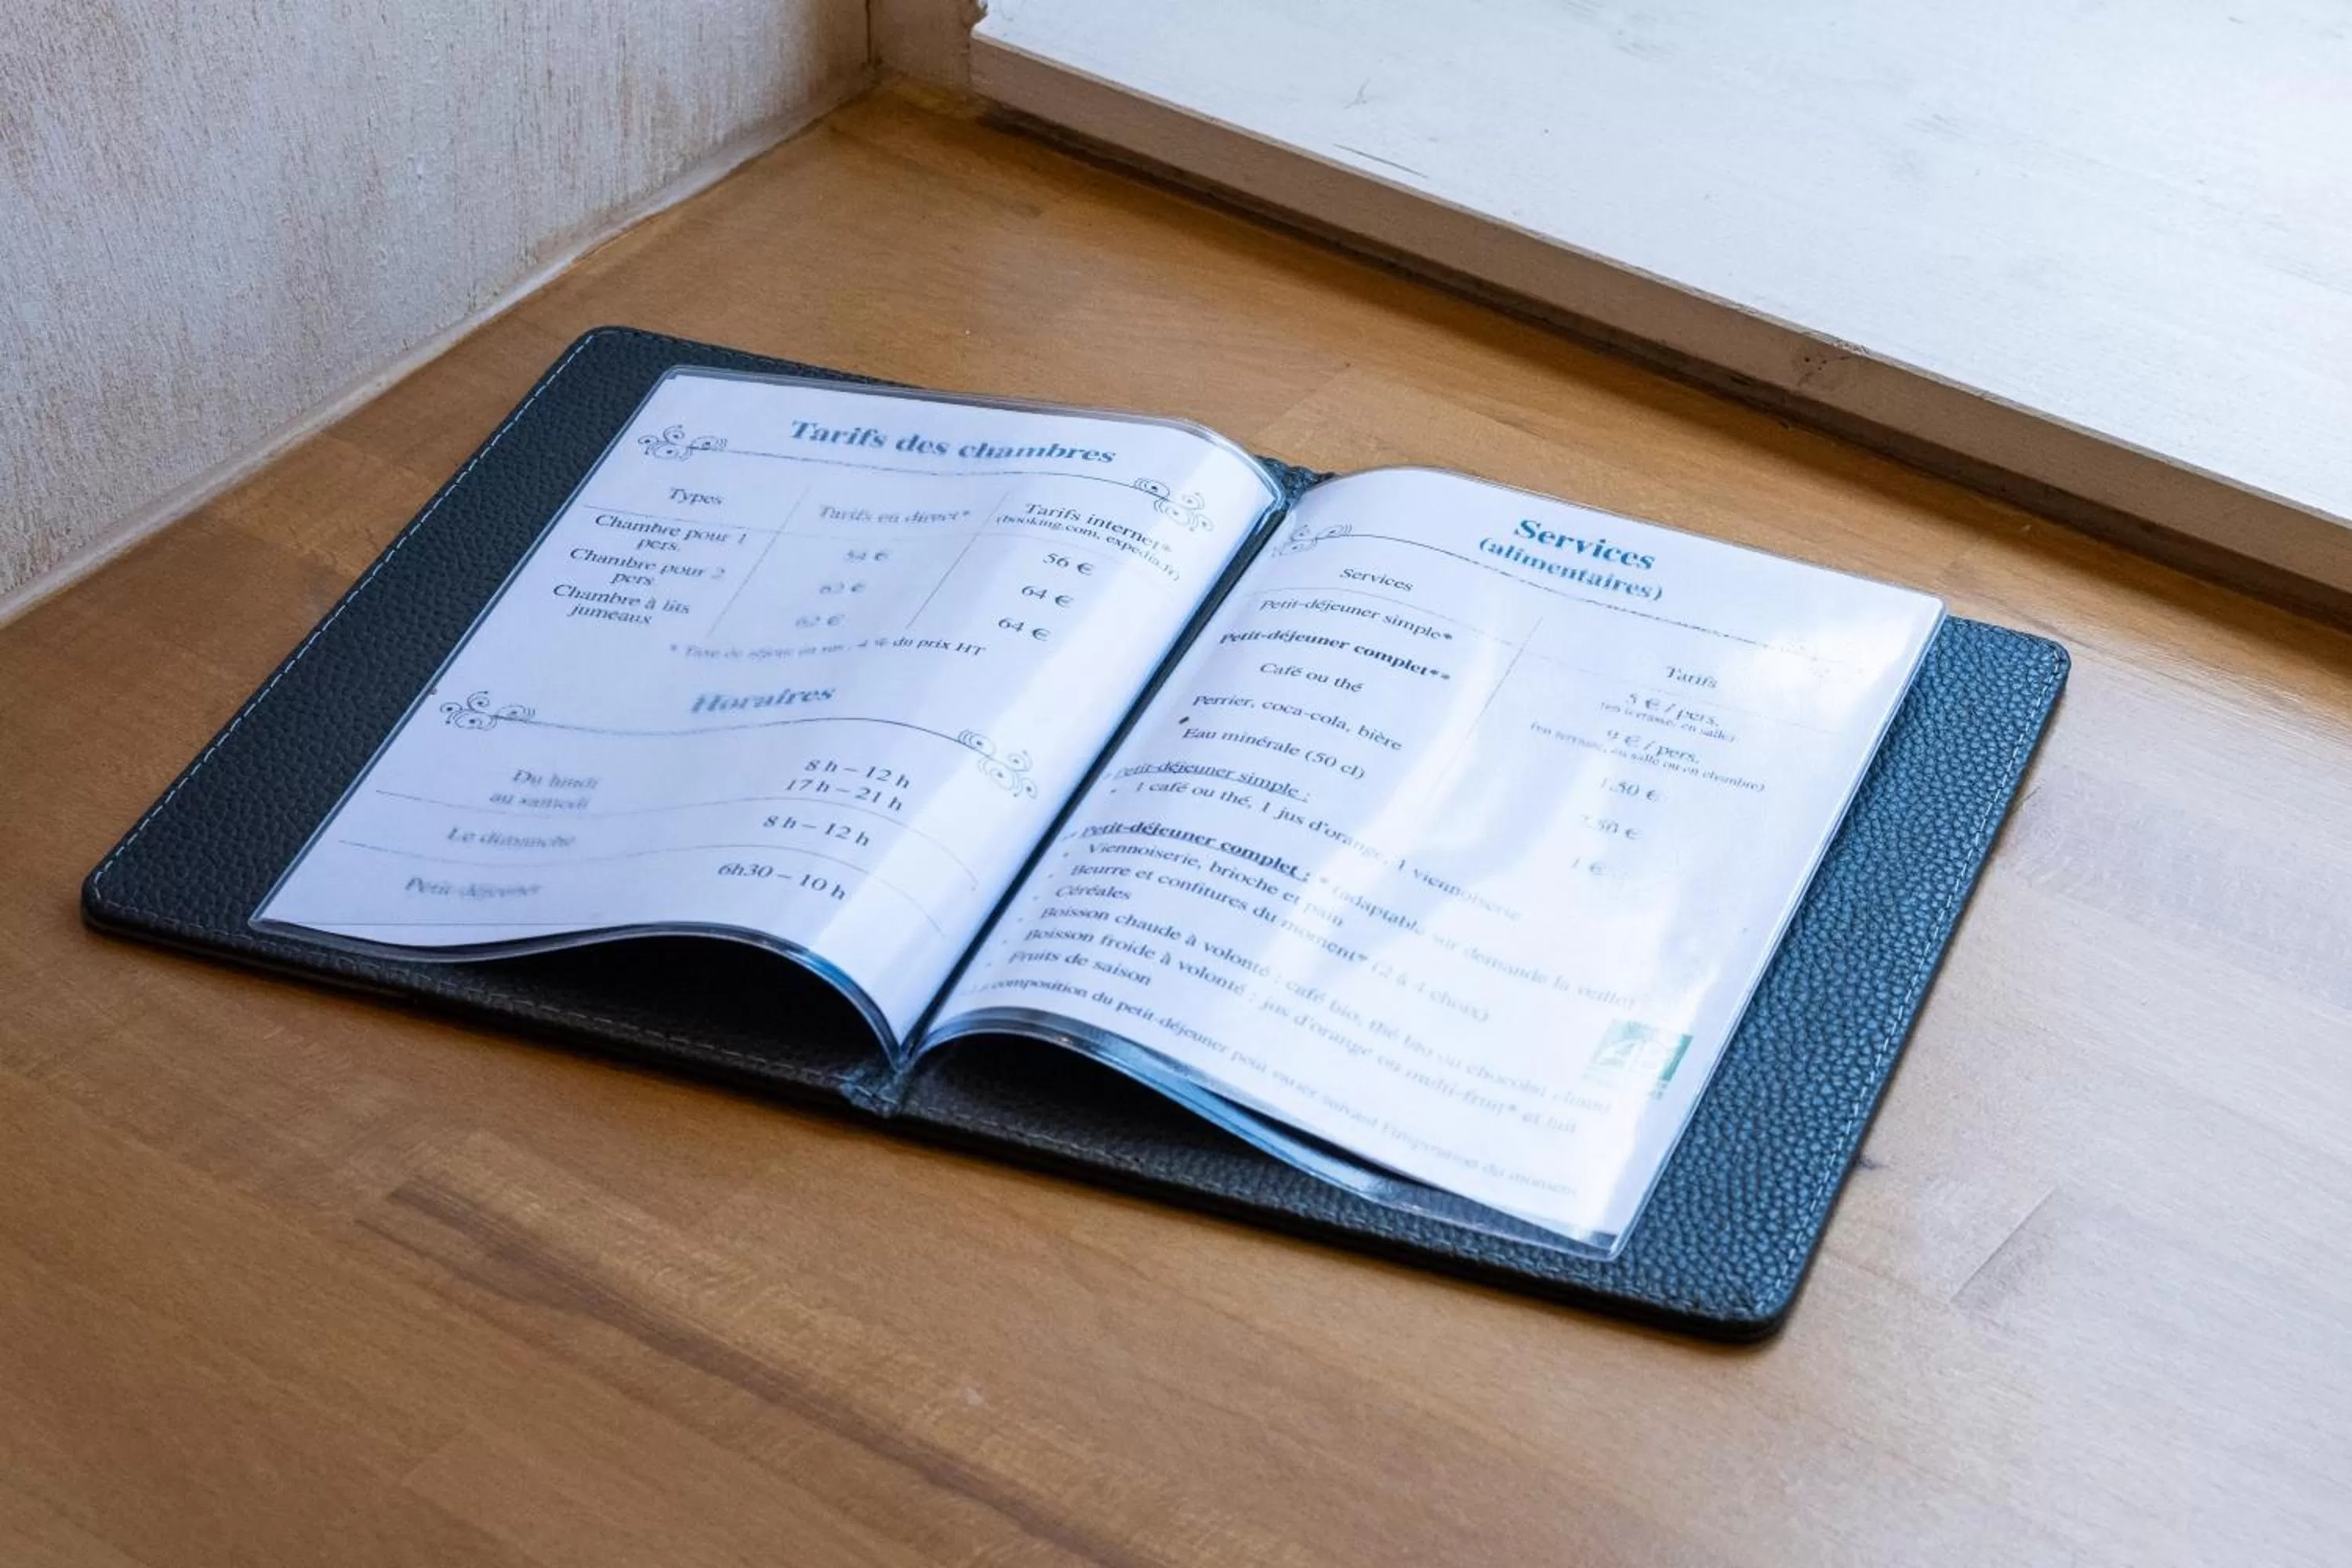 Tarifs des chambres
Types
Tarifs en direct*
Tarifs internet*
(booking.com, expedia.fr)
Chambre pour 1
pers.
54 €
56 €
Chambre pour 2
pers
62 €
64 €
Chambre à lits
jumeaux
62 €
64 €
* Taxe de séjour en sus : 4 % du prix HT
Horaires
Du lundi
au samedi
8 h – 12 h
17 h – 21 h
Le dimanche
8 h – 12 h
Petit-déjeuner
6h30 – 10 h
Services
(alimentaires)
Services
Tarifs
Petit-déjeuner simple*
5 € / pers.
(en terrasse, en salle)
Petit-déjeuner complet**
9 € / pers.
(en terrasse, en salle ou en chambre)
Café ou thé
1.50 €
Perrier, coca-cola, bière
2.50 €
Eau minérale (50 cl)
1 €
* Petit-déjeuner simple :
1 café ou thé, 1 jus d'orange, 1 viennoiserie
** Petit-déjeuner complet : * (adaptable sur demande la veille)
Viennoiserie, brioche et pain
Beurre et confitures du moment* (2 à 4 choix)
Céréales
Boisson chaude à volonté : café bio, thé bio ou chocolat chaud
Boisson froide à volonté : jus d'orange ou multi-fruit* et lait
Fruits de saison
composition du petit-déjeuner peut varier suivant l'inspiration du moment
AB